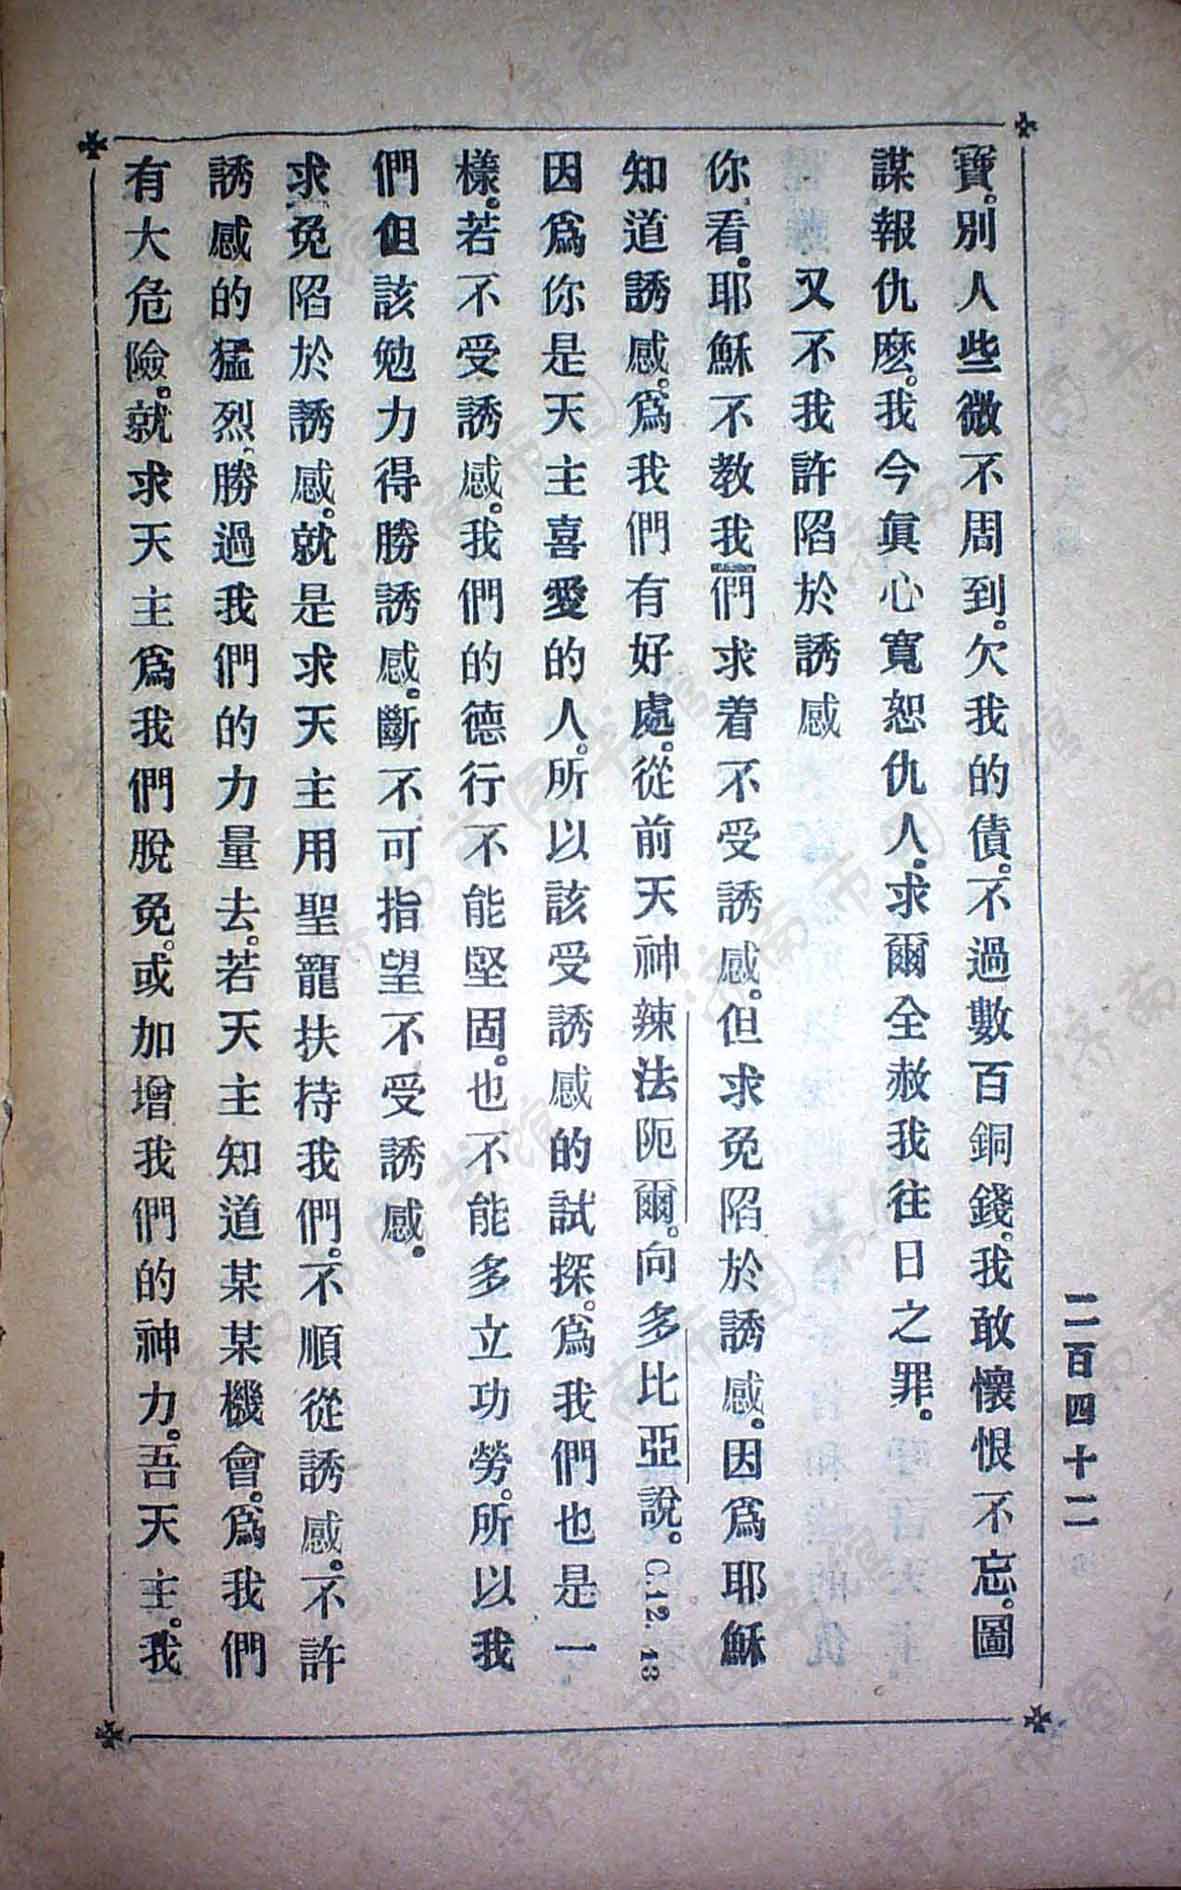 二百四十二
寶。別人些微不周到。欠我的債。不過數百銅錢。我敢懷恨不忘。圖
謀報仇麽。我今眞心寬恕仇人。求爾全赦我往日之罪。
又不我許陷於誘感
你看。耶穌不教我們求着不受誘感。但求免陷於誘感。因爲耶穌
知道誘感。爲我們有好處。從前天神辣法阨爾。向多比亞說。C.12. 13
因爲你是天主喜愛的人。所以該受誘感的試探。爲我們也是一
樣。若不受誘感。我們的德行不能堅固。也不能多立功勞。所以我
們但該勉力得勝誘感。斷不可指望不受誘感。
求免陷於誘感。就是求天主用聖寵扶持我們。不順從誘感。不許
誘感的猛烈。勝過我們的力量去。若天主知道某某機會。爲我們
有大危險。就求天主爲我們脫免。或加增我們的神力。吾天主。我